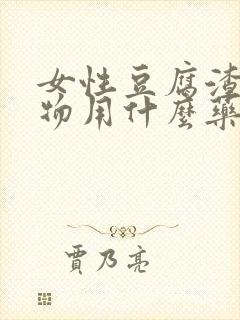 女性豆腐渣
物用什麼藥
賈乃亮